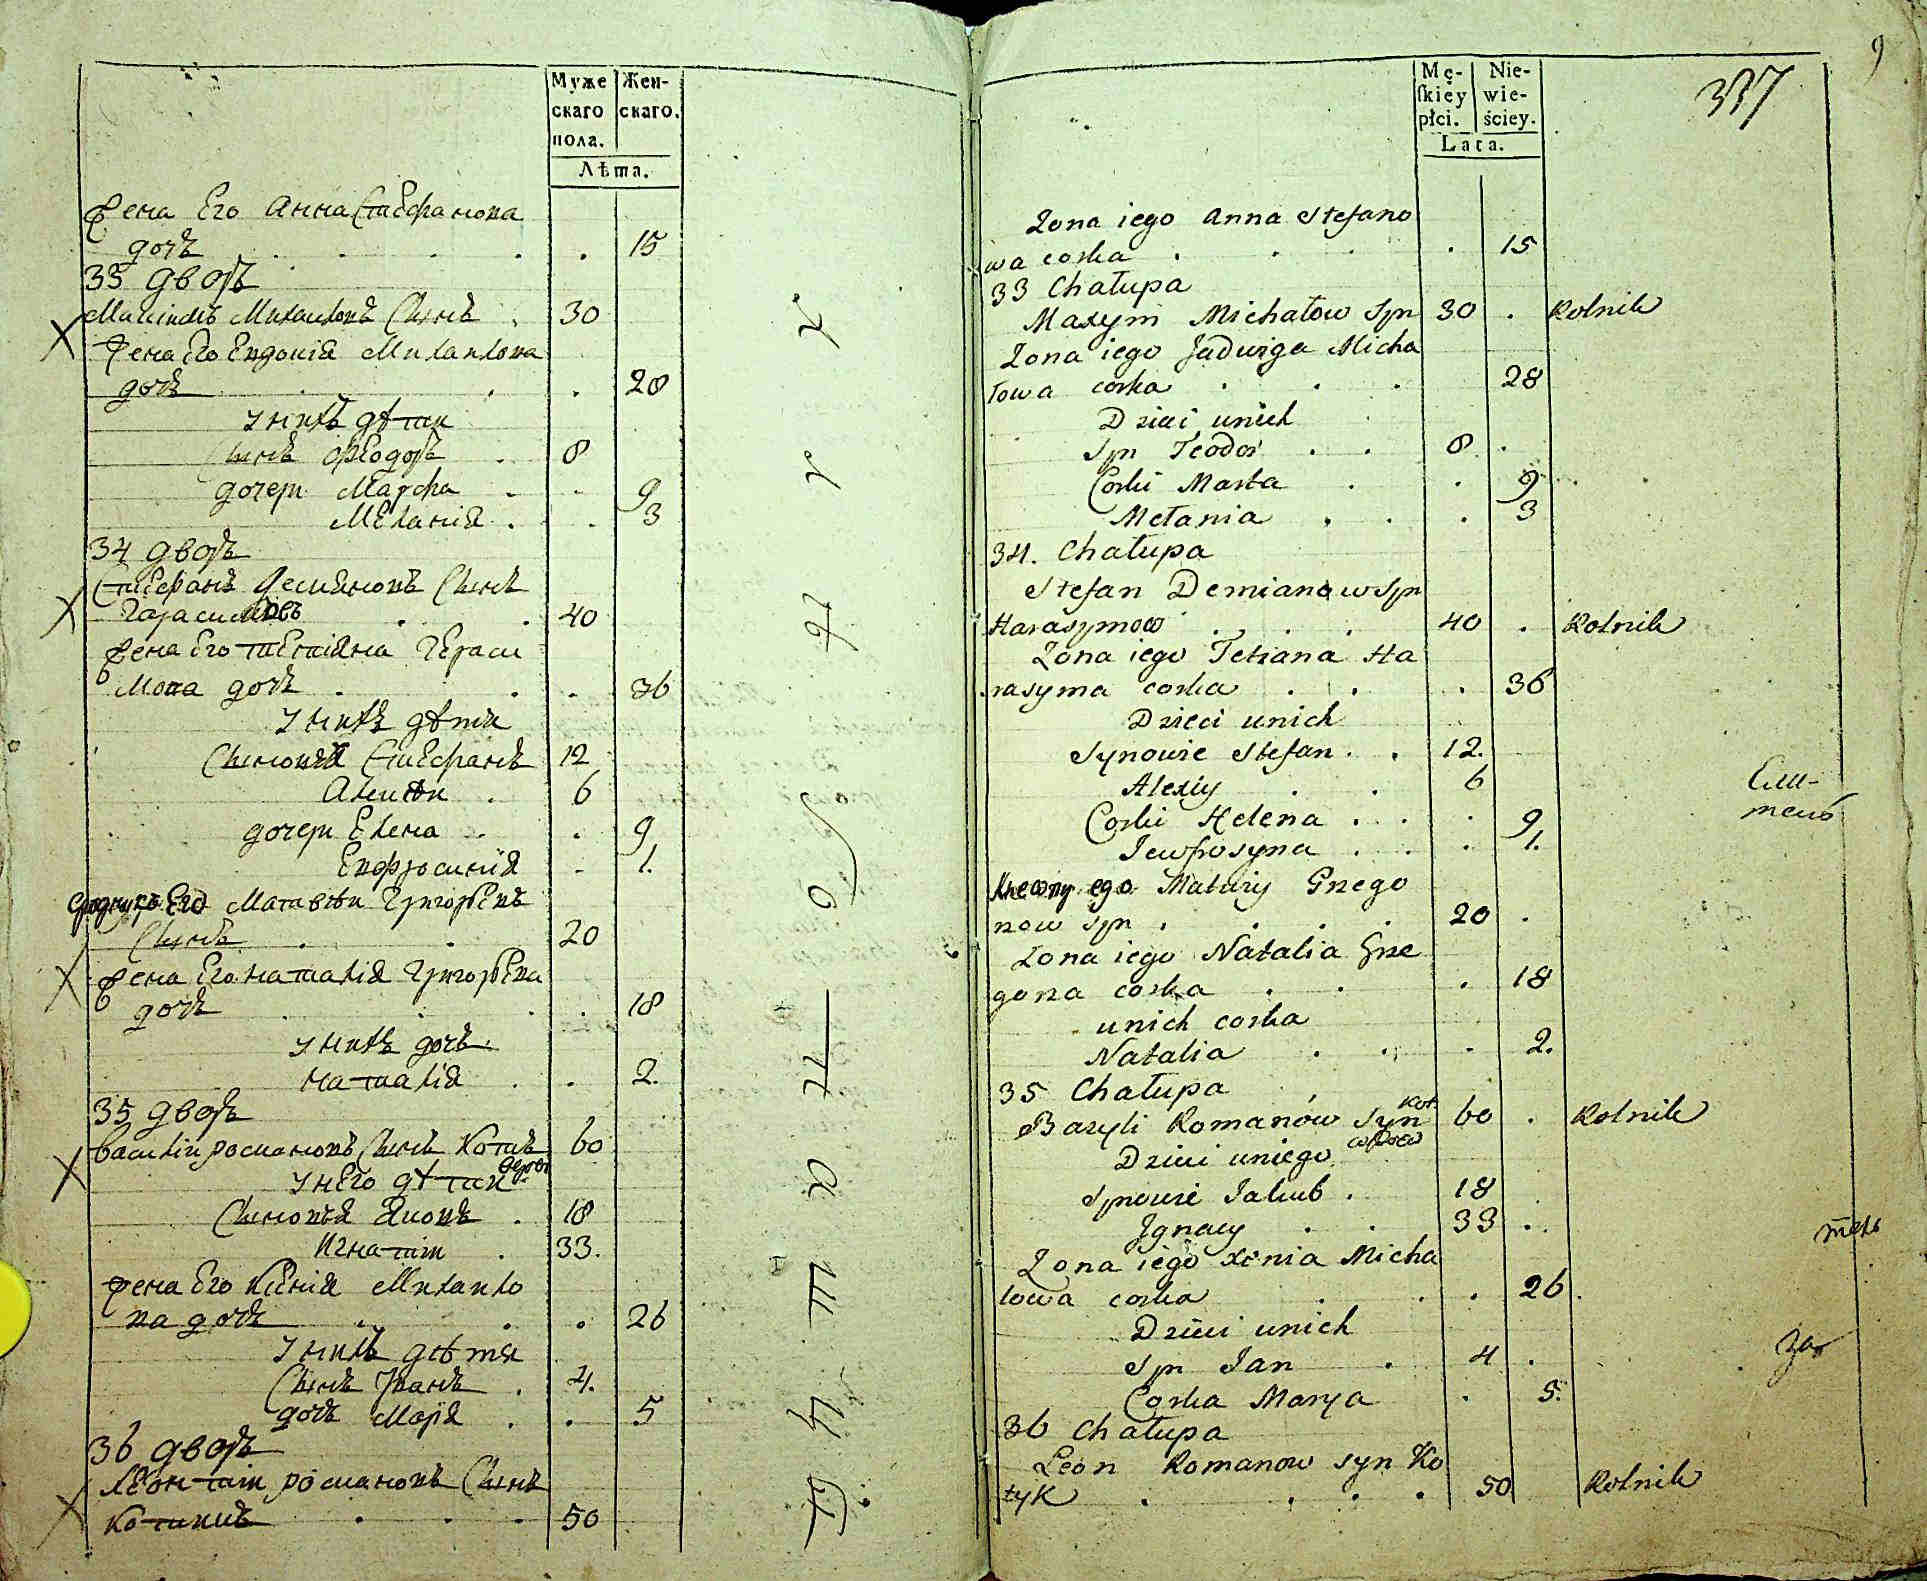 Муже
скаго
пола.
Жен-
скаго.
Лѣта.
Жена Его Анна Стефанова
дочь . . . . . 15
33 дворъ
Максимъ Михайловъ Сынъ . 30
Жена Его Евдокія Михайлова
дочь . . . 28
У нихъ дѣтей
Сынъ Ѳеодоръ . 8
дочери Марфа . . 9
Меланія . . 3
34 дворъ
Стефанъ Демяновъ Сынъ
Гарасимовъ . . 40
Жена Его Тетіяна Гераси
мова дочь . . . 36
У нихъ дѣти
Сыновья Стефанъ 12
Алексѣй . 6
дочери Елена . . 9
Евфросинія . 1.
Его Матвѣй Григорьевъ
Сынъ . . 20
Жена Его Наталія Григорьева
дочь . . . . 18
У нихъ дочь
Наталія . . 2.
35 дворъ
Василій Романовъ Сынъ Котикъ 60
У Него дѣтей
Сыновья Яковъ . 18
Игнатій . 33.
Жена Его Ксенія Михайло
ва дочь . . . 26
У нихъ дѣтей
Сынъ Иванъ . 4.
дочь Марія . . 5
36 дворъ
Леонтій Романовъ Сынъ
Котикъ . . . 50
9
337
Mę-
ſkiey
płci.
Nie-
wie-
ściey.
Lata.
Zona iego Anna Stefano
wa corka . . . . . 15
33 Chałupa
Maxym Michałow Syn 30 . Rolnik
Zona iego Jadwiga Micha
łowa corka . . . 28
Dzieci unich
Syn Teodor . . 8 .
Corki Marta . . 9
Metania . . . 3
34. Chałupa
Stefan Demianow Syn
Harasymow . . . 40 . Rolnik
Zona iego Tetiana Ha
rasyma corka . . . 36
Dzieci unich
Synowie Stefan . . 12.
Alexiy . . 6
Corki Helena . . . 9
Jewfrosyna . . . 1.
ego Matwiy Grzego
rzow syn . . . . 20 .
Zona iego Natalia Grze
gorza corka . . . 18
unich corka
Natalia . . . 2.
35 Chałupa
Bazyli Romanów Syn Kot 60 . Rolnik
wdow
Dzieci uniego
Synowie Jakub . 18
Ignacy . . 33 .
Zona iego Xenia Micha
łowa corka . . . 26.
Dzieci unich
Syn Jan . 4 .
Corka Marya . 5.
36 Chałupa
Leon Romanow syn Ko
tyk . . . . 50 Rolnik